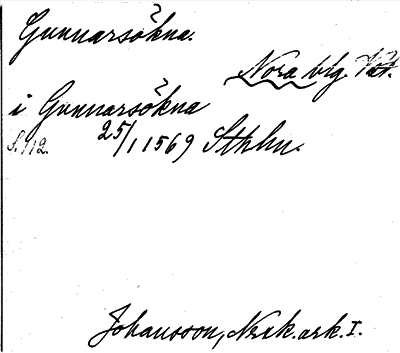 Gunnarsökna.
Nora blg. Vst.
i Gunnarsökna
S. 112. 25/1 1569 Sthlm.
Johansson, Nrak. ark. I.